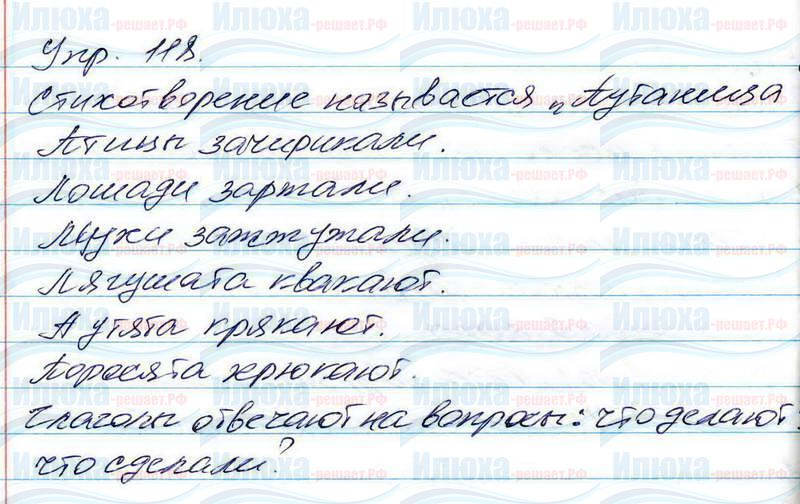 Упр. 118.
Стихотворение называется „Путаница
Птицы зачирикали.
Лошади заржали.
Мухи зажжужали.
Лягушата квакают.
А утята крякают.
Поросята хрюкают.
Глаголы отвечают на вопросы: что делают?
что сделали?